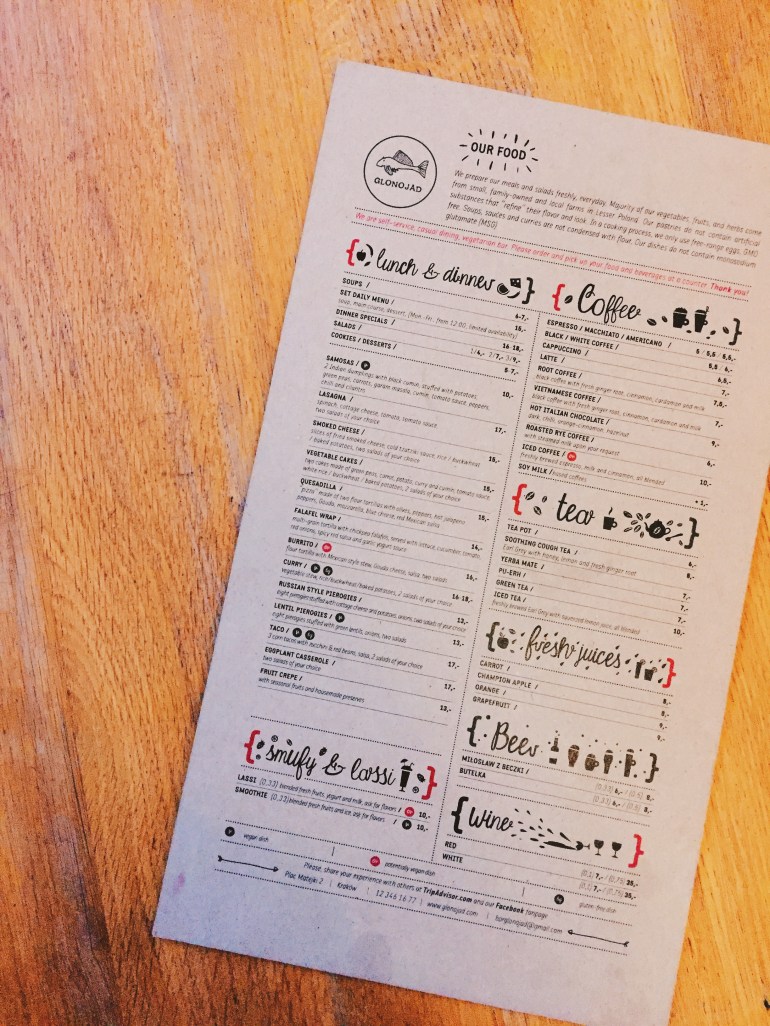 GLONOJAD
OUR FOOD
We prepare our meals and salads freshly, everyday. Majority of our vegetables, fruits, and herbs come
from small, family-owned and local farms in Lesser Poland. Our pastries do not contain artificial
substances that "refine" their flavor and look. In a cooking process, we only use free-range eggs, GMO
free. Soups, sauces and curries are not condensed with flour. Our dishes do not contain monosodium
glutamate (MSG)
We are self-service, casual dining, vegetarian bar. Please order and pick up your food and beverages at a counter. Thank you!
{ lunch & dinner }
SOUPS / 6-7,-
SET DAILY MENU / 15,-
soup, main course, dessert, (Mon.-Fri. from 12:00, limited availability)
DINNER SPECIALS / 16-18,-
SALADS / 1/4,- 2/7,- 3/9,-
COOKIES / DESSERTS / 5-7,-
SAMOSAS / 10,-
2 Indian dumplings with black cumin, stuffed with potatoes,
green peas, carrots, garam masala, cumin, tomato sauce, peppers,
chili and cilantro
LASAGNA / 17,-
spinach, cottage cheese, tomato, tomato sauce
two salads of your choice
SMOKED CHEESE / 15,-
slices of fried smoked cheese, cold tzatziki sauce, rice / buckwheat
/ baked potatoes, two salads of your choice
VEGETABLE CAKES / 15,-
two cakes made of green peas, carrot, potato, curry and cumin, tomato sauce
white rice / buckwheat / baked potatoes, 2 salads of your choice
QUESADILLA / 14,-
"pizza" made of two flour tortillas with olives, peppers, hot jalapeno
peppers, Gouda, mozzarella, blue cheese, red Mexican salsa
FALAFEL WRAP / 16,-
multi-grain tortilla with chickpea falafels, served with lettuce, cucumber, tomato,
red onions, spicy red salsa and garlic yogurt sauce
BURRITO /
flour tortilla with Mexican style stew, Gouda cheese, salsa, two salads
CURRY / 16-18,-
vegetable stew, rice/buckwheat/baked potatoes, 2 salads of your choice
RUSSIAN STYLE PIEROGIES / 13,-
eight pierogies stuffed with cottage cheese and potatoes, onions, two salads of your choice
LENTIL PIEROGIES / 13,-
eight pierogies stuffed with green lentils, onions, two salads
TACO / 17,-
3 corn tacos with zucchini & red beans, salsa, 2 salads of your choice
EGGPLANT CASSEROLE / 17,-
two salads of your choice
FRUIT CREPE / 13,-
with seasonal fruits and housemade preserves
{ smufy & lassi }
LASSI (0,33) blended fresh fruits, yogurt and milk, ask for flavors / 10,-
SMOOTHIE (0,33) blended fresh fruits and ice, ask for flavors / 10,-
{ Coffee }
ESPRESSO / MACCHIATO / AMERICANO / 5 / 5,5 / 5,5,-
BLACK / WHITE COFFEE / 5,5 / 6,-
CAPPUCCINO / 6,5,-
LATTE / 7,-
ROOT COFFEE / 7,5,-
black coffee with fresh ginger root, cinnamon, cardamon and milk
VIETNAMESE COFFEE / 7,-
black coffee with fresh ginger root, cinnamon, cardamon and milk
HOT ITALIAN CHOCOLATE / 9,-
dark, chili, orange-cinnamon, hazelnut
ROASTED RYE COFFEE / 6,-
with steamed milk upon your request
ICED COFFEE / 10,-
freshly brewed espresso, milk and cinnamon, all blended
SOY MILK / + 1,-
{ tea }
TEA POT / 6,-
SOOTHING COUGH TEA / 8,-
Earl Grey with honey, lemon and fresh ginger root
YERBA MATE / 7,-
PU-ERH / 7,-
GREEN TEA / 7,-
ICED TEA / 10,-
freshly brewed Earl Grey with squeezed lemon juice, all blended
{ fresh juices }
CARROT / 8,-
CHAMPION APPLE / 8,-
ORANGE / 9,-
GRAPEFRUIT / 9,-
{ Beer }
MIŁOSŁAW Z BECZKI / (0,33) 6,- / (0,5) 8,-
BUTELKA (0,33) 6,- / (0,5) 8,-
{ wine }
RED (0,1) 7,- / (0,75) 35,-
WHITE (0,1) 7,- / (0,75) 35,-
vegan dish | potentially vegan dish | gluten-free dish
Please, share your experience with others at TripAdvisor.com and our Facebook fanpage
Plac Matejki 2 | Kraków | 12 346 16 77 | www.glonojad.com | barglonojad@gmail.com